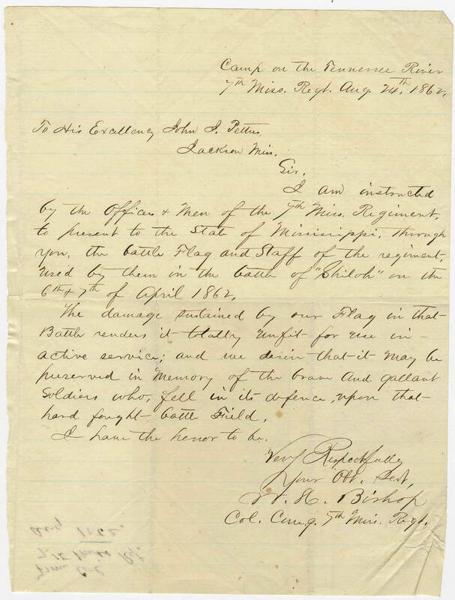 Camp on the Tennessee River
7th Miss. Regt. Aug 24th, 1862.
To His Excellency John J. Pettus
Jackson Miss.
Sir.
I am instructed
by the Officers & Men of the 7th Miss. Regiment,
to present to the State of Mississippi, through
you, the battle Flag and Staff of the regiment,
used by them in the battle of "Shiloh" on the
6th & 7th of April 1862.
The damage sustained by our Flag in that
Battle renders it totally unfit for use in-
active service; and we desire that it may be
preserved in Memory of the brave and gallant
Soldiers who, fell in its defence, upon that
hard fought battle Field,
I have the honor to be.
Very Respectfully
Your Obt. Svt,
H. Bishop
Col. Comg. 7th Miss. Regt.
Aug 1862.
7th Miss Regt.
from Col